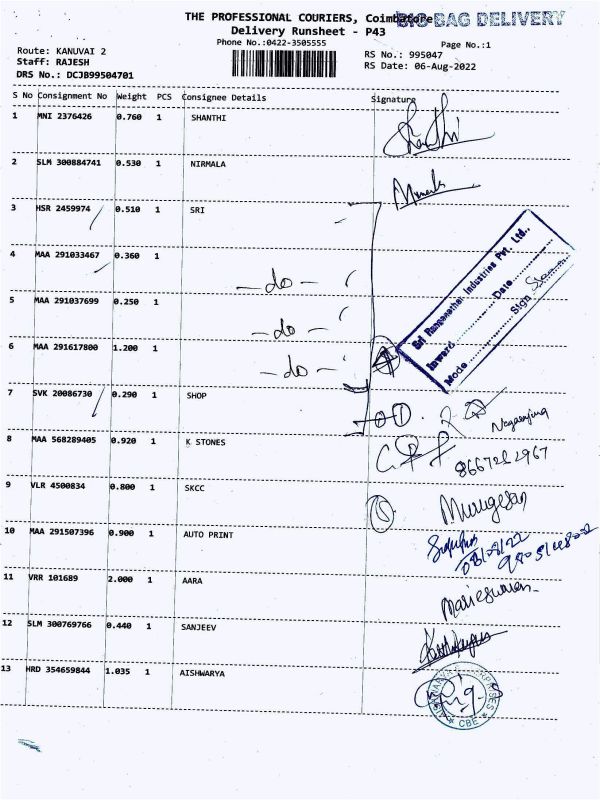 THE PROFESSIONAL COURIERS, Coimbatore
BIG BAG DELIVERY
Delivery Runsheet - P43
Phone No.:0422-3505555
Page No.:1
Route: KANUVAI 2
RS No.: 995047
Staff: RAJESH
RS Date: 06-Aug-2022
DRS No.: DCJB99504701
S No Consignment No Weight PCS Consignee Details Signature
1 MNI 2376426 0.760 1 SHANTHI Shanthi
2 SLM 300884741 0.530 1 NIRMALA
3 HSR 2459974 0.510 1 SRI
4 MAA 291033467 0.360 1 - do -
5 MAA 291037699 0.250 1 - do -
6 MAA 291617800 1.200 1 - do -
Sri Ranganathar Industries Pvt. Ltd.,
Inward ............ Date ............
Mode ............ Sign
7 SVK 20086730 0.290 1 SHOP
8 MAA 568289405 0.920 1 K STONES
9 VLR 4500834 0.800 1 SKCC Murugesan
10 MAA 291507396 0.900 1 AUTO PRINT
11 VRR 101689 2.000 1 AARA Marieswaran
12 SLM 300769766 0.440 1 SANJEEV
13 HRD 354659844 1.035 1 AISHWARYA
CBE